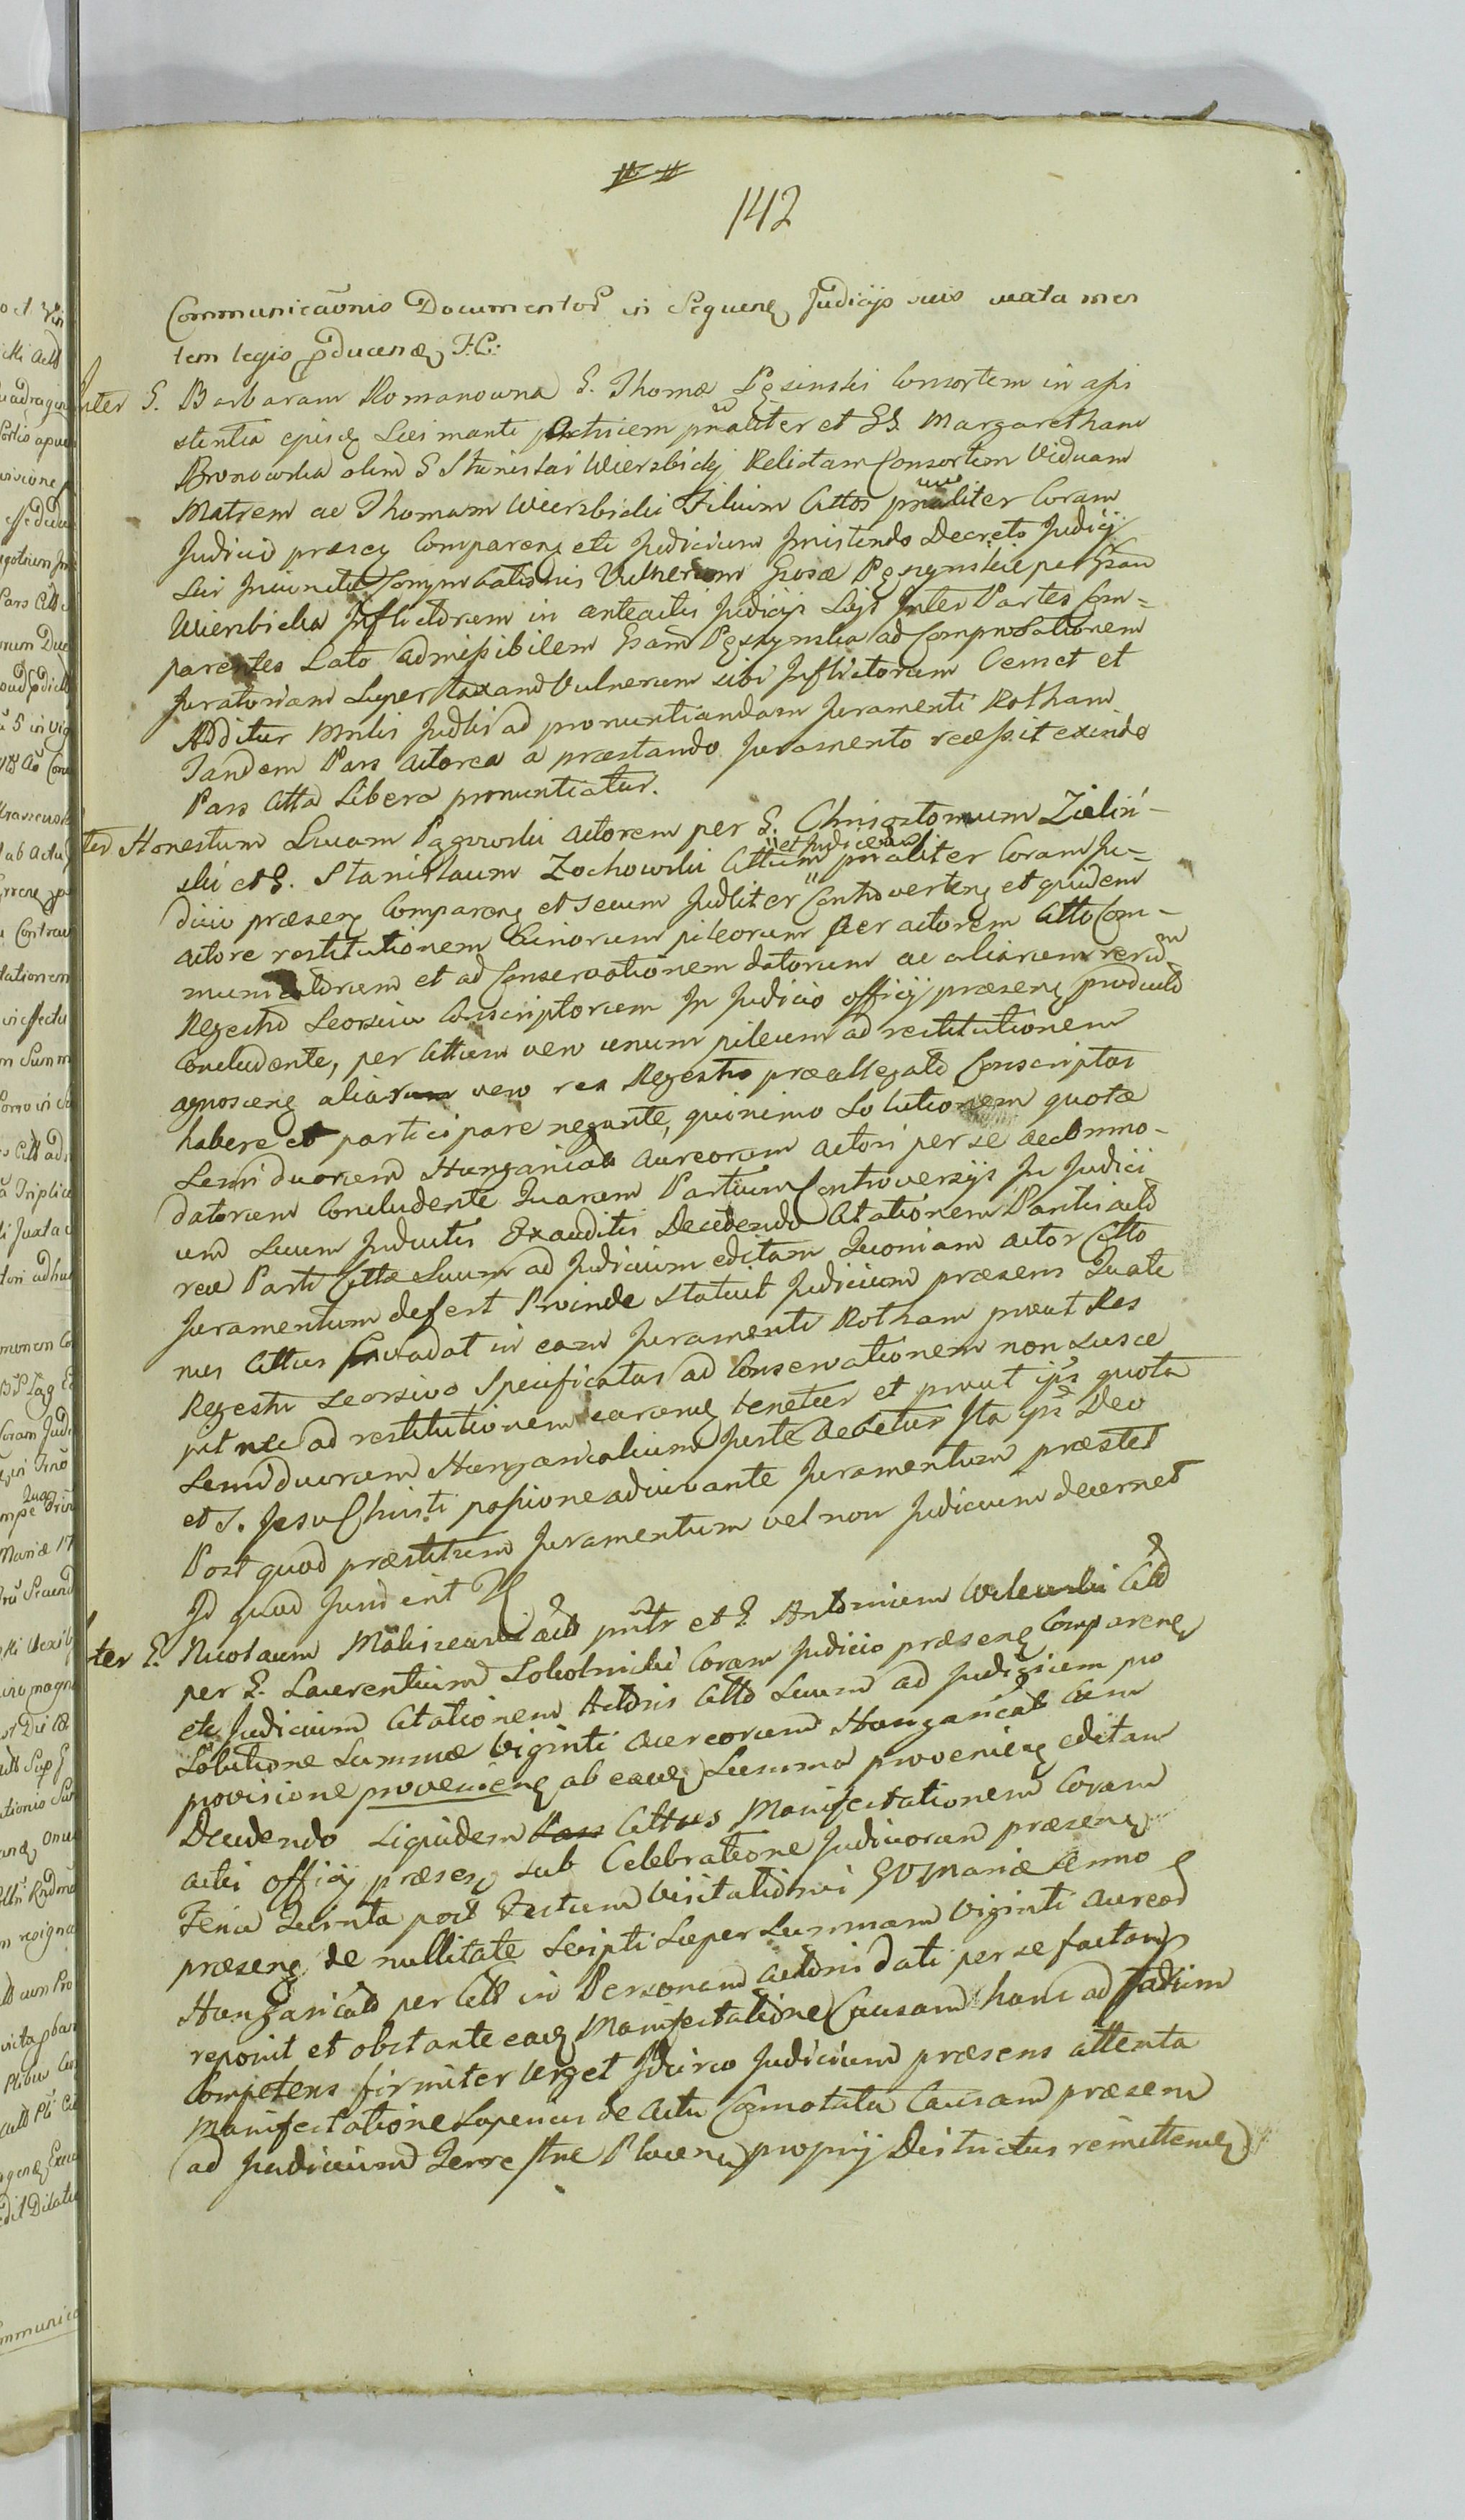 142
Communicaōnis Documentoꝝ in Sequenꝫ Judicijs suis iuxta men
tem legis ꝓducenꝫ F.C.:
Inter G. Barbaram Romanowna G. Thomæ Pęsinski Consortem in assi
stentia ejusꝫ Sui mariti Actricem pñaliter et GG. Margaretham
Bronowska olim G Stanislai Wierzbicki Relictam Consortem Viduam
Matrem ac Thomam Wierzbicki Filium Cttos pnaliter Coram
Judicio præsenꝫ Comparenꝫ etc Judicium Insistendo Decreto Judicij
Sui Iniunctæ Comprobationis Vulnerum Gosæ Pęszynskie per Gsam
Wierzbicka Inflictorum in anteactis Judicijs Sijs Inter Partes Com=
parentes Lato admissibilem Gsam Pęszynska ad Comprobationem
Juratoriam Super taxam Vulnerum sibi Inflictorum Censet et
Additur Mnlis Judlis ad pronuntiandam Juramenti Rotham
Tandem Pars Actorea a præstando Juramento recessit exinde
Pars Ctta Libera pronuntiatur.
ter Honestum Lucam Pągowski Actorem per G. Chrisostomum Zielin-
ski et G. Stanislaum Zochowski Cttum pnaliter Coram Ju-
et Judicem
dicio præsenꝫ Comparenꝫ et secum Judliter Controvertenꝫ et quidem
actore restitutionem binorum pileorum per actorem Ctto Com-
municatorum et ad Conservationem datorum ac aliarum rerum
Regestro Seorsivo Conscriptorum In Judicio officij præsenꝫ producto
Concludente, per Cttum vero unum pileum ad restitutionem
agnoscenꝫ aliarum vero res Regestro præallegato Conscriptas
habere et participare negante, quinimo Solutionem quotæ
Semi duorum Hungarical Aureorum Actori per se accommo-
datorum Concludente Quarum Partium Controversijs In Judici
um Suum Inductis Exauditis Decidendo Citationem Partis acto
reæ Parti Cttæ Suum ad Judicium editam Quoniam actor Ctto
Juramentum defert Proinde Statuit Judicium præsens Quate
nus Cttus Invadat in eam Juramenti Rotham prout Res
Regestro seorsivo Specificatas ad Conservationem non Susce
pit nec ad restitutionem earumꝫ tenetur et prout ipsi quota
Semi duorum Hungaricalium Juste debetur Ita ipsi Deo
et J. Jesu Christi passione adiuvante Juramentum præstet
Post quod præstitum Juramentum vel non Judicium decernet
Id quod Juris erit
ter G. Nicolaum Maliszewski act pntr et G. Antonium Wilewski Ctto
per G. Laurentium Sokolnicki Coram Judicio præsenꝫ Comparenꝫ
etc Judicium Citationem Actoris Ctto Suum ad Judicium pro
Solutione Summæ Viginti Aureorum Hungarical Cum
provisione provenienꝫ ab eaqꝫ Summa provenienꝫ editam
Decidendo Siquidem Pars Cttus Manifestationem Coram
actis officij præsenꝫ sub Celebratione Judiciorum præsenꝫ
Feria Quinta post Festum Visitationis BVMariæ Anno
præsenꝫ de nullitate Scripti Super Summam Viginti Aureoꝝ
Hungarical per Ctt in Personam Actoris dati per se factam
reponit et obstante eaqꝫ Manifestatione Causam hanc ad Forum
Competens firmiter urget Idcirco Judicium præsens attenta
Manifestatione Superius de Actu Connotata Causam præsenꝫ
ad Judicium Terrestre Plocenꝫ proprij Districtus remittendꝫ